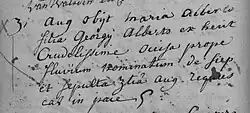 3, Aug obijt maria Alberts
filia Georgy Alberts ex heist
Crudelissime occisa prope
fluvium nominatum de
et sepulta 7tia aug requies
cat in pace